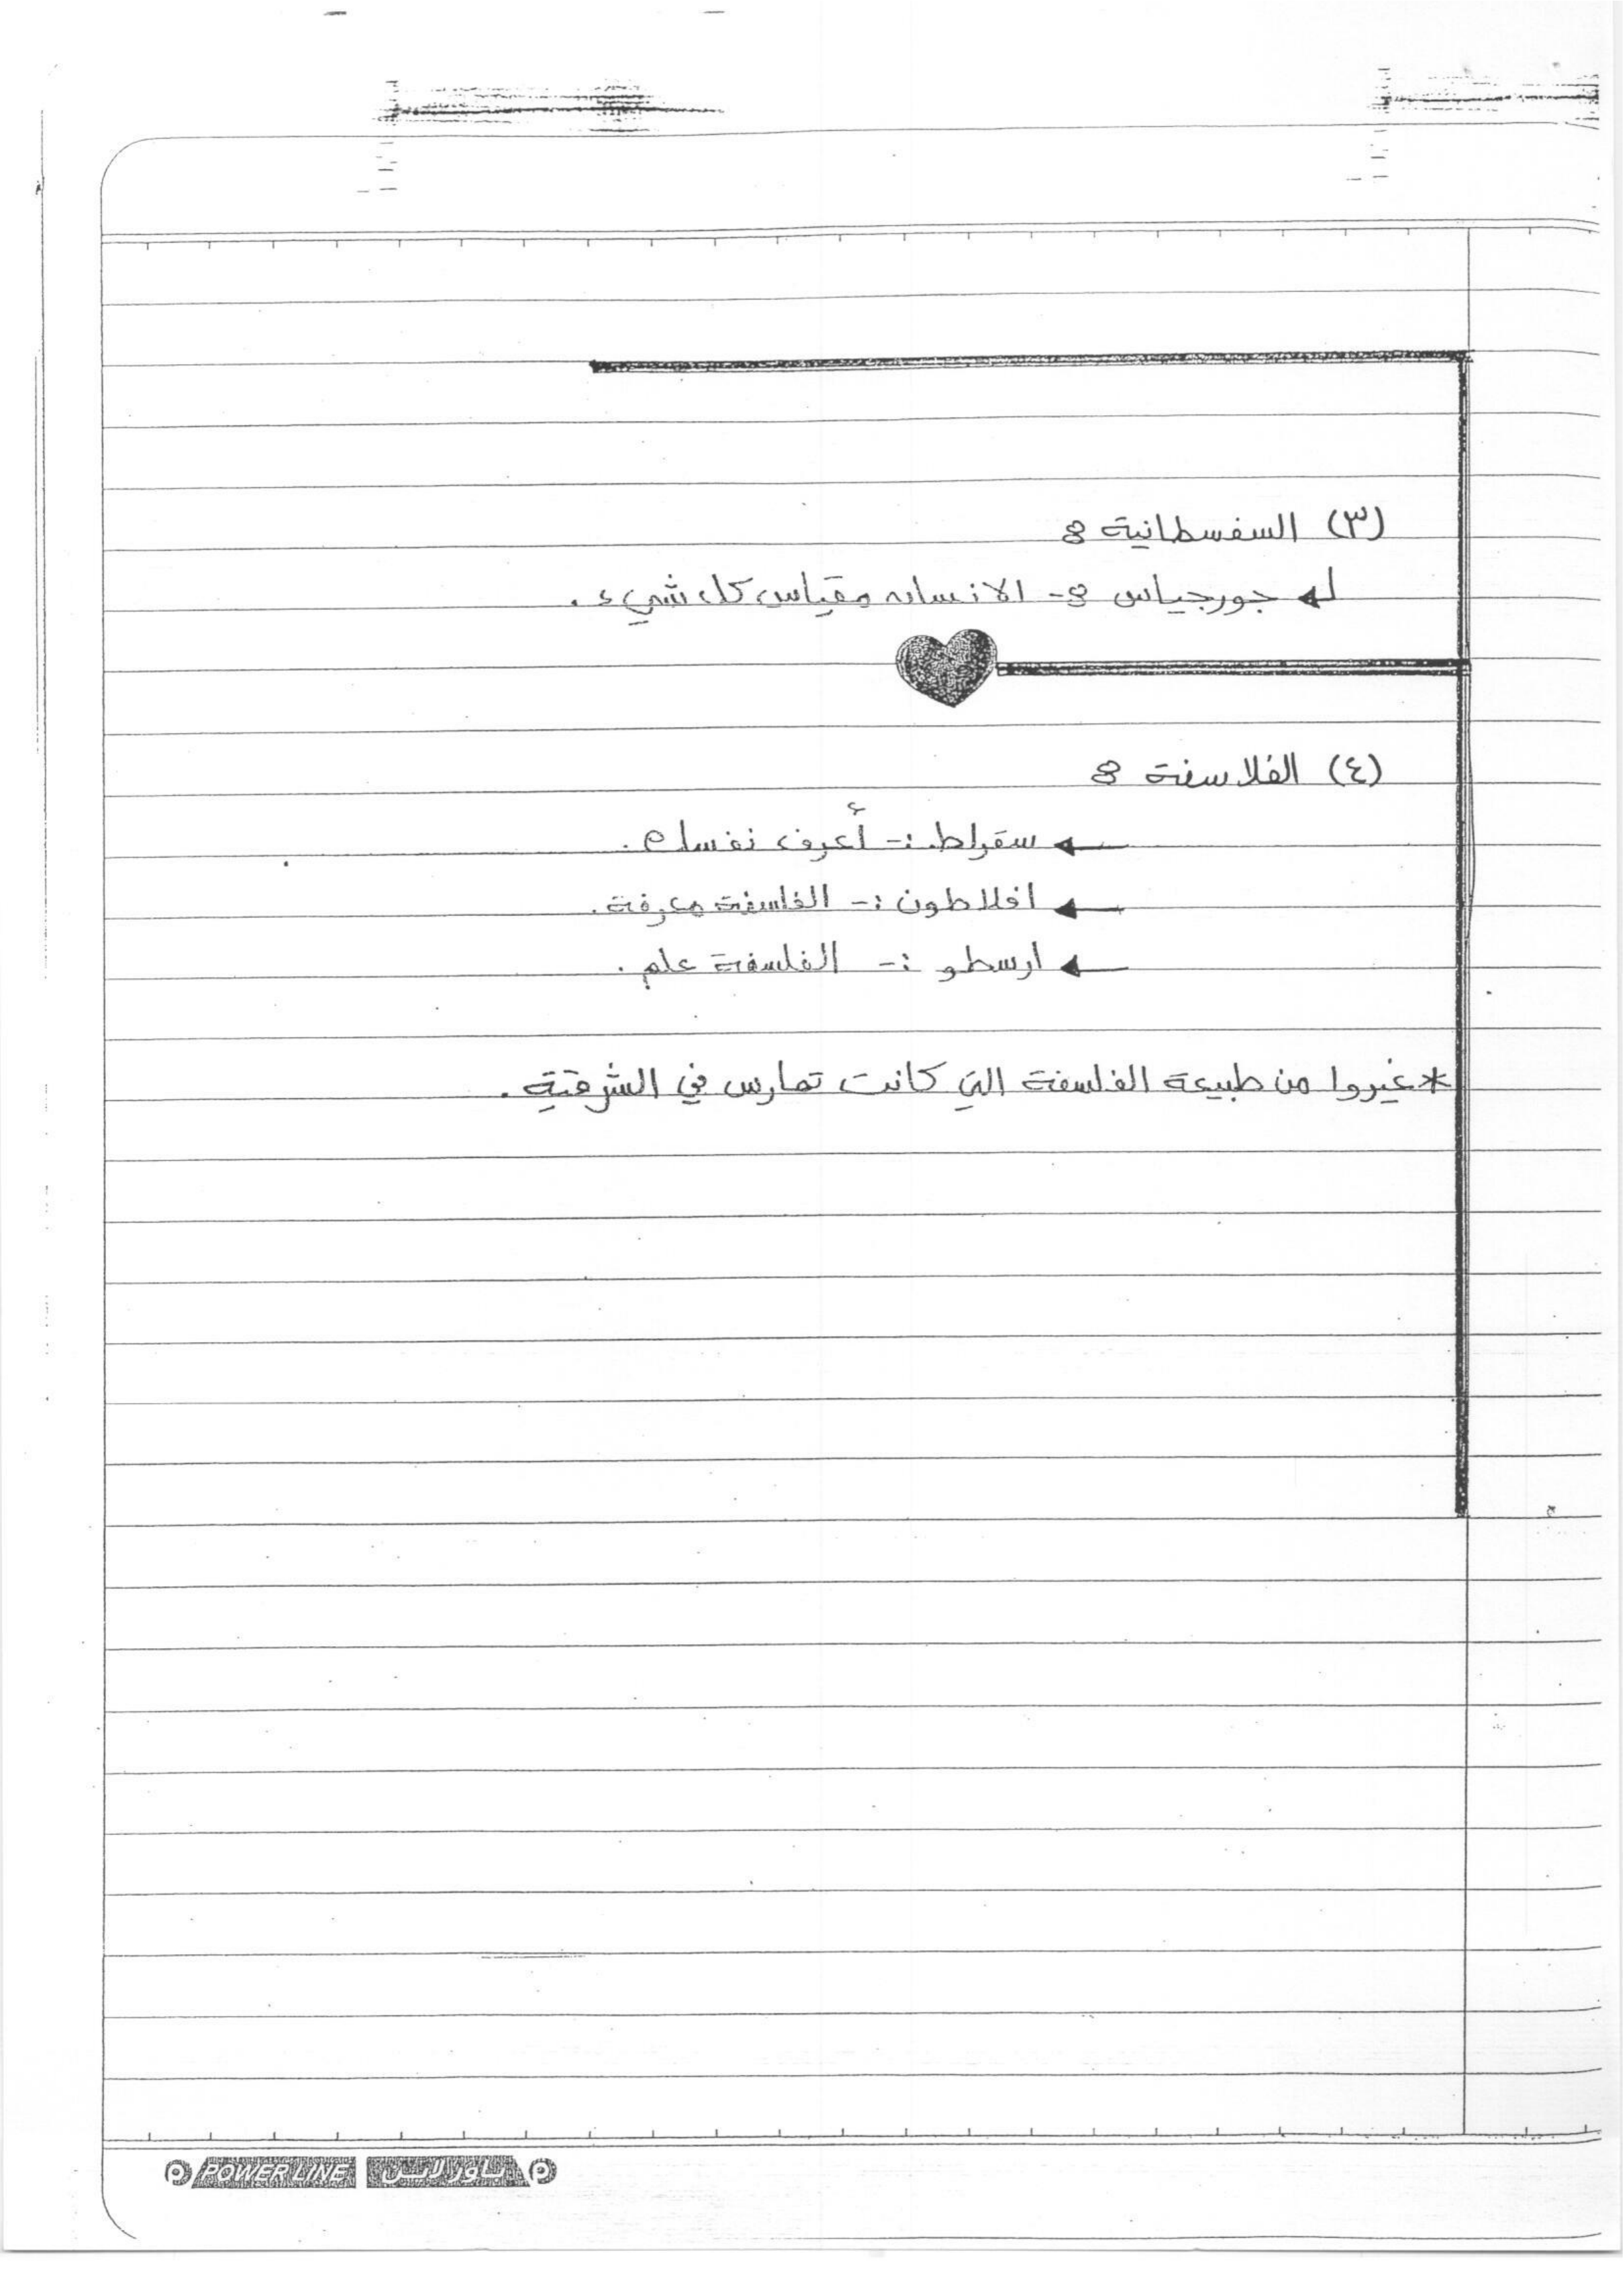 (٣) السفسطانية :
جورجياس :- الانسان مقياس كل شيء .
(٤) الفلاسفة :
سقراط :- أعرف نفسك .
افلاطون :- الفلسفة معرفة .
ارسطو :- الفلسفة علم .
* غيروا من طبيعة الفلسفة التي كانت تمارس في الشرقية .
POWER LINE باور لايـن